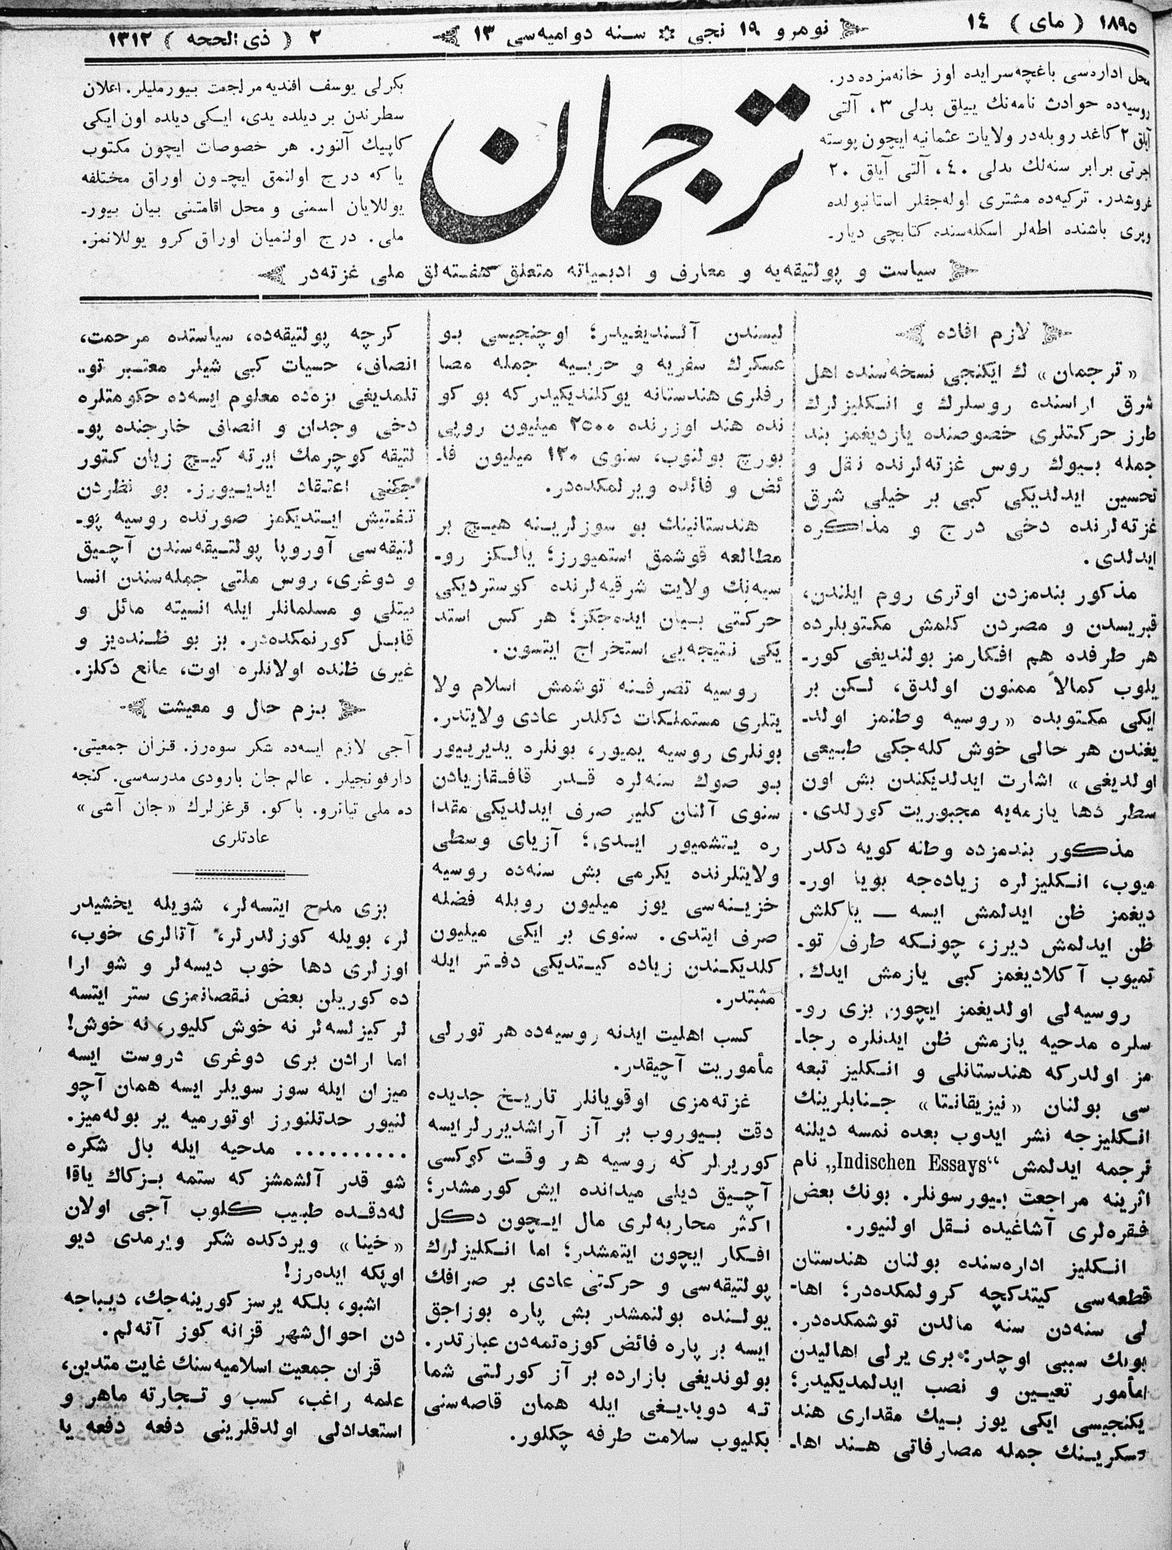 ١٨٩٥ ( ماى ) ١٤
نومرو ١٩ نجى ۞ سنه دواميه‌سى ١٣
٢ ( ذى الحجه ) ١٣١٢
محل اداره‌سى باغچه‌سرايده اوز خانه‌مزده‌در.
روسيه‌ده حوادث نامه‌نك ييللق بدلى ٣، آلتى
آيلق ٢ كاغد روبله‌در ولايات عثمانيه ايچون پوسته
اجرتى برابر سنه‌لك بدلى ٤٠، آلتى آيلق ٢٠
غروشدر. تركيه‌ده مشترى اوله‌جقلر استانبولده
ويرى باشنده اطه‌لر اسكله‌سنده كتابچى ديار-
ترجمان
بكرلى يوسف افنديه مراجعت بيورمليلر. اعلان
سطرندن بر ديلده يدى، ايكى ديلده اون ايكى
كاپيك آلنور. هر خصوصات ايچون مكتوب
ياكه درج اولنمق ايچون اوراق مختلفه
يوللايان اسمنى و محل اقامتنى بيان بيور-
ملى. درج اولنميان اوراق كرو يوللانمز.
سياست و پولتيقه‌يه و معارف و ادبياته متعلق هفته‌لق ملى غزته‌در
لازم افاده
«ترجمان» ك ايكنجى نسخه‌سنده اهل
شرق اراسنده روسلرك و انكليزلرك
طرز حركتلرى خصوصنده يازديغمز بند
جمله بيوك روس غزته‌لرنده نقل و
تحسين ايدلديكى كبى بر خيلى شرق
غزته‌لرنده دخى درج و مذاكره
ايدلدى.
مذكور بندمزدن اوترى روم ايلندن،
قبريسدن و مصردن كلمش مكتوبلرده
هر طرفده هم افكارمز بولنديغى كور-
يلوب كمالاً ممنون اولدق، لكن بر
ايكى مكتوبده «روسيه وطنمز اولد-
يغندن هر حالى خوش كله‌جكى طبيعى
اولديغى» اشارت ايدلديكندن بش اون
سطر دها يازمه‌يه مجبوريت كورلدى.
مذكور بندمزده وطنه كويه دكدر
ميوب، انكليزلره زياده‌جه بويا اور-
ديغمز ظن ايدلمش ايسه — ياكلش
ظن ايدلمش ديرز، چونكه طرف تو-
تميوب آكلاديغمز كبى يازمش ايدك.
روسيه‌لى اولديغمز ايچون بزى رو-
سلره مدحيه يازمش ظن ايدنلره رجا-
مز اولدركه هندستانلى و انكليز تبعه
سى بولنان «نيزيقانتا» جنابلرينك
انكليزجه نشر ايدوب بعده نمسه ديلنه
ترجمه ايدلمش „Indischen Essays“ نام
اثرينه مراجعت بيورسونلر. بونك بعض
فقره‌لرى آشاغيده نقل اولنيور.
انكليز اداره‌سنده بولنان هندستان
قطعه‌سى كيتدكچه كرولمكده‌در؛ اها-
لى سنه‌دن سنه مالدن توشمكده‌در.
بونك سببى اوچدر: برى يرلى اهاليدن
مأمور تعيين و نصب ايدلمديكيدر؛
يكنجيسى ايكى يوز بيك مقدارى هند
عسكرينك جمله مصارفاتى هند اها-
ليسندن آلنديغيدر؛ اوچنجيسى بو
عسكرك سفريه و حربيه جمله مصا
رفلرى هندستانه يوكلنديكيدركه بو كو
نده هند اوزرنده ٢٥٠٠ ميليون روپى
بورچ بولنوب، سنوى ١٣٠ ميليون فا-
ئض و فائده ويرلمكده‌در.
هندستانينك بو سوزلرينه هيچ بر
مطالعه قوشمق استميورز؛ يالكز رو-
سيه‌نك ولايت شرقيه‌لرنده كوستردیكى
حركتى بيان ايده‌جكز؛ هر كس استد
يكى نتيجه‌يى استخراج ايتسون.
روسيه تصرفنه توشمش اسلام ولا
يتلرى مستملكات دكلدر عادى ولايتدر.
بونلرى روسيه يميور، بونلره يديرييور
بو صوك سنه‌لره قدر قافقازيادن
سنوى آلنان كلير صرف ايدلديكى مقدا
ره يتشميور ايدى؛ آزياى وسطى
ولايتلرنده يكرمى بش سنه‌ده روسيه
خزينه‌سى يوز ميليون روبله فضله
صرف ايتدى. سنوى بر ايكى ميليون
كلديكندن زياده كيتديكى دفتر ايله
مثبتدر.
كسب اهليت ايدنه روسيه‌ده هر تورلى
مأموريت آچيقدر.
غزته‌مزى اوقويانلر تاريخ جديده
دقت بيوروب بر آز آراشديررلرايسه
كوريرلر كه روسيه هر وقت كوكسى
آچيق ديلى ميدانده ايش كورمشدر؛
اكثر محاربه‌لرى مال ايچون دكل
افكار ايچون ايتمشدر؛ اما انكليزلرك
پولتيقه‌سى و حركتى عادى بر صرافك
يولنده بولنمشدر بش پاره بوزاجق
ايسه بر پاره فائض كوزه‌تمه‌دن عبارتدر.
بولونديغى بازارده بر آز كورلتى شما
ته دويديغى ايله همان قاصه‌سنى
بكليوب سلامت طرفه چكلور.
كرچه پولتيقه‌ده، سياستده مرحمت،
انصاف، حسيات كبى شيلر معتبر تو-
تلمديغى بزه‌ده معلوم ايسه‌ده حكومتلره
دخى وجدان و انصافى خارجنده پو-
لتيقه كوچرمك ايرته كيچ زيان كتور
جكنى اعتقاد ايدييورز. بو نظردن
تفتيش ايتديكمز صورتده روسيه پو-
لتيقه‌سى آوروپا پولتيقه‌سندن آچيق
و دوغرى، روس ملتى جمله‌سندن انسا
نيتلى و مسلمانلر ايله انسيته مائل و
قابل كورنمكده‌در. بز بو ظنده‌يز و
غيرى ظنده اولانلره اوت، مانع دكلز.
بزم حال و معيشت
آجى لازم ايسه‌ده شكر سوه‌رز. قزان جمعيتى.
دارفونجيلر. عالم جان بارودى مدرسه‌سى. كنجه
ده ملى تياترو. باكو. قرغزلرك «جان آشى»
عادتلرى
بزى مدح ايتسه‌لر، شويله يخشيدر
لر، بويله كوزلدرلر، آتالرى خوب،
اوزلرى دها خوب ديسه‌لر و شو ارا
ده كوريلن بعض نقصانمزى ستر ايتسه
لر كيزلسه‌لر نه خوش كليور، نه خوش!
اما ارادن برى دوغرى دروست ايسه
ميزان ايله سوز سويلر ايسه همان آچو
لنيور حدتلنورز اوتورميه ير بوله‌ميز.
.......... مدحيه ايله بال شكره
شو قدر آلشمشز كه ستمه بزكاك ياقا
له‌دقده طبيب كلوب آجى اولان
«خينا» ويردكده شكر ويرمدى ديو
اوپكه ايده‌رز!
اشبو، بلكه يرسز كورينه‌جك، ديباجه
دن احوال‌شهر قزانه كوز آته‌لم.
قزان جمعيت اسلاميه‌سنك غايت متدين،
علمه راغب، كسب و تجارته ماهر و
استعدادلى اولدقلرينى دفعه دفعه يا